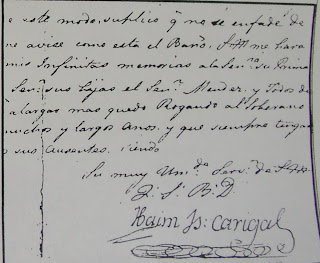 este modo, suplico q̃ no se enfade de
me avise como esta el Baño, S M me hara
mis Infinitas memorias a la Señ.ra su Prima
Señ.s sus hijas el Señ.r Mendez, y Todos de
alargar mas quedo Rogando al Soberano
muchos y largos Anos, y que siempre tenga
sus Ausentes, siendo
Su muy Um.de Serv.r de S M
Q. S. B. D.
Haim Is: Carigal